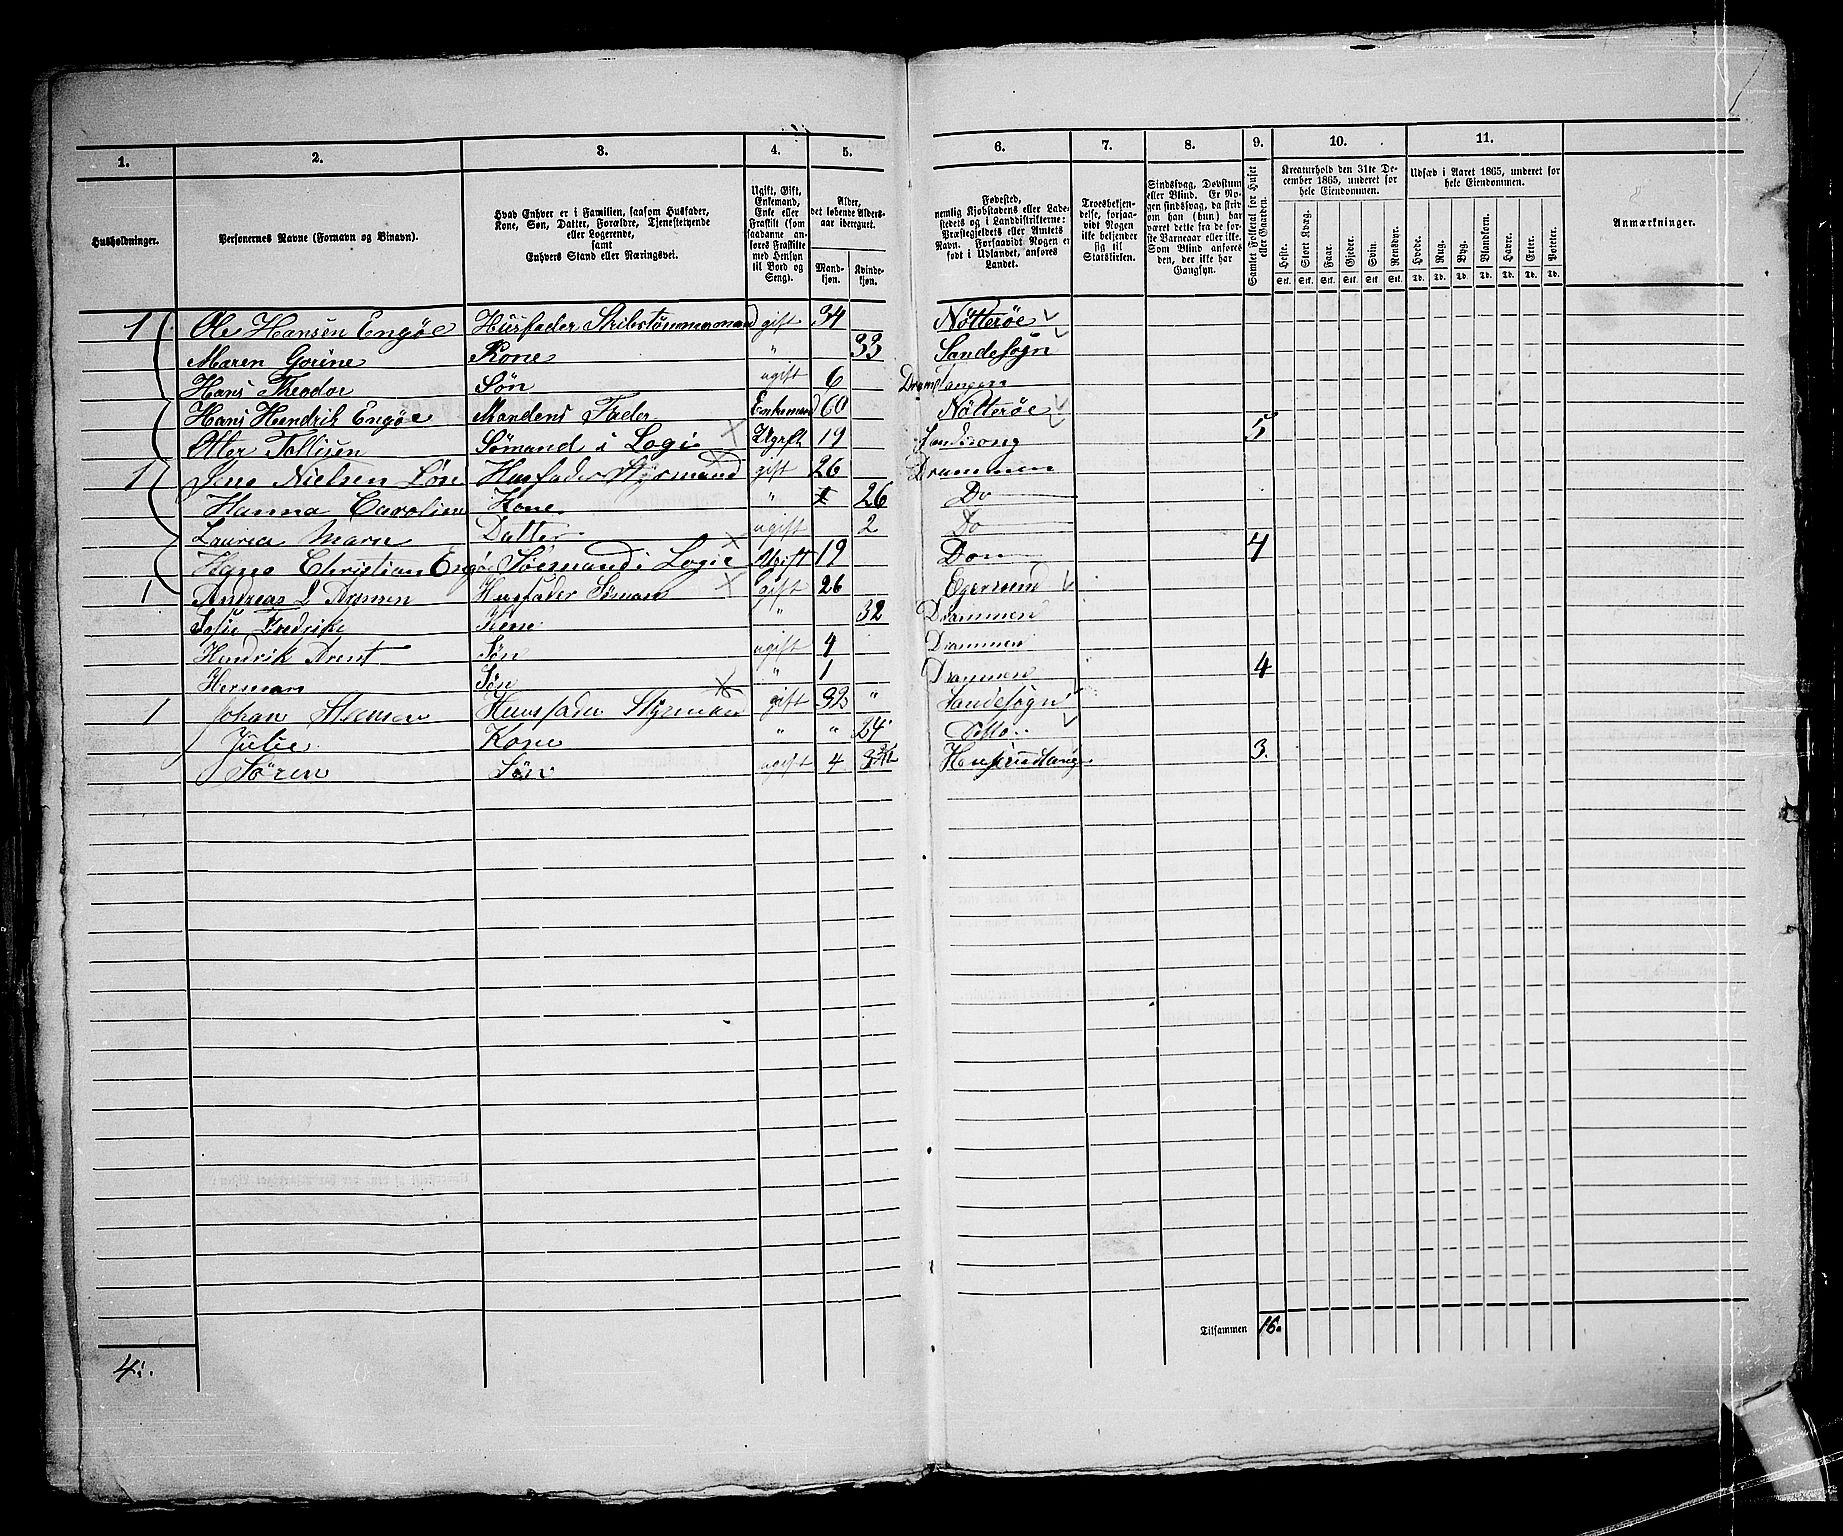 1. 2. 3. 4. 5. 6. 7. 8. 9. 10. 11.
Husholdninger.
Personernes Navne (Fornavn og Binavn).
Hvad Enhver er i Familien, saasom Husfader,
Kone, Søn, Datter, Forældre, Tjenestetyende
eller Logerende,
samt
Enhvers Stand eller Næringsvei.
Ugift, Gift,
Enkemand,
Enke eller
Fraskilt (som
saadanne an-
føres Fraskilte
med Hensyn
til Bord og
Seng).
Alder,
det løbende Alders-
aar iberegnet.
Mand-
kjøn.
Kvinde-
kjøn.
Fødested,
nemlig Kjøbstadens eller Lade-
stedets og i Landdistrikterne:
Præstegjeldets eller Amtets
Navn. Forsaavidt Nogen er
født i Udlandet, anføres
Landet.
Troesbekjen-
delse, forsaa-
vidt Nogen
ikke bekjender
sig til
Statskirken.
Sindssvag, Døvstum
eller Blind. Er No-
gen sindssvag, da skriv
om han (hun) har
været dette fra de før-
ste Barneaar eller ikke.
Som Blind anføres
den, der ikke har
Gangsyn.
Samlet Folketal for Huset
eller Gaarden.
Kreaturhold den 31te De-
cember 1865, underet for
hele Eiendommen.
Heste. Stort Kvæg. Faar. Gjeder. Svin. Rensdyr.
Stk. Stk. Stk. Stk. Stk. Stk.
Udsæd i Aaret 1865, underet for
hele Eiendommen.
Hvede. Rug. Byg. Blandkorn. Havre. Erter. Poteter.
Td. Td. Td. Td. Td. Td. Td.
Anmærkninger.
1 Ole Hansen Engøe Husfader Skibstømmermand gift 34 Nøtterøe
Maren Gorine Kone " 33 Sandesogn
Hans Theodor Søn ugift 6 Dram Tangen
Hans Hendrik Engøe Mandens Fader Enkemand 60 Nøtterøe
Sømand i Logi Ugift 19 5
1 Jens Nielsen Husfader Styrmand gift 26 Drammen
Hanna Caroline Kone " 26 Do
Laurea Marie Datter ugift 2 Do
Christian Engø Søemand i Logie Ugift 19 Dom 4
1 Andreas Husfader Søman gift 26 Egersund
Sofie Fredrike Kone " 32 Drammen
Hendrik Arent Søn ugift 4 Drammen
Herman Søn " 1 Drammen 4
1 Johan Huusfader Styrman gift 32 " Sandesogn
Julie Kone " " 24 Ditto
Søren Søn ugift 4 3.
Tilsammen 16.
4.